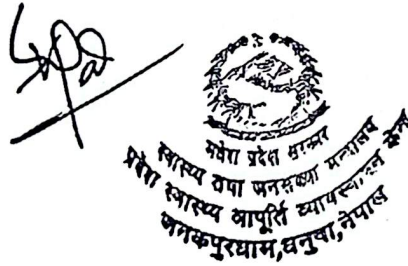 मधेश प्रदेश सरकार
स्वास्थ्य तथा जनसंख्या मन्त्रालय
प्रदेश स्वास्थ्य आपूर्ति व्यवस्थापन केन्द्र
जनकपुरधाम, धनुषा, नेपाल